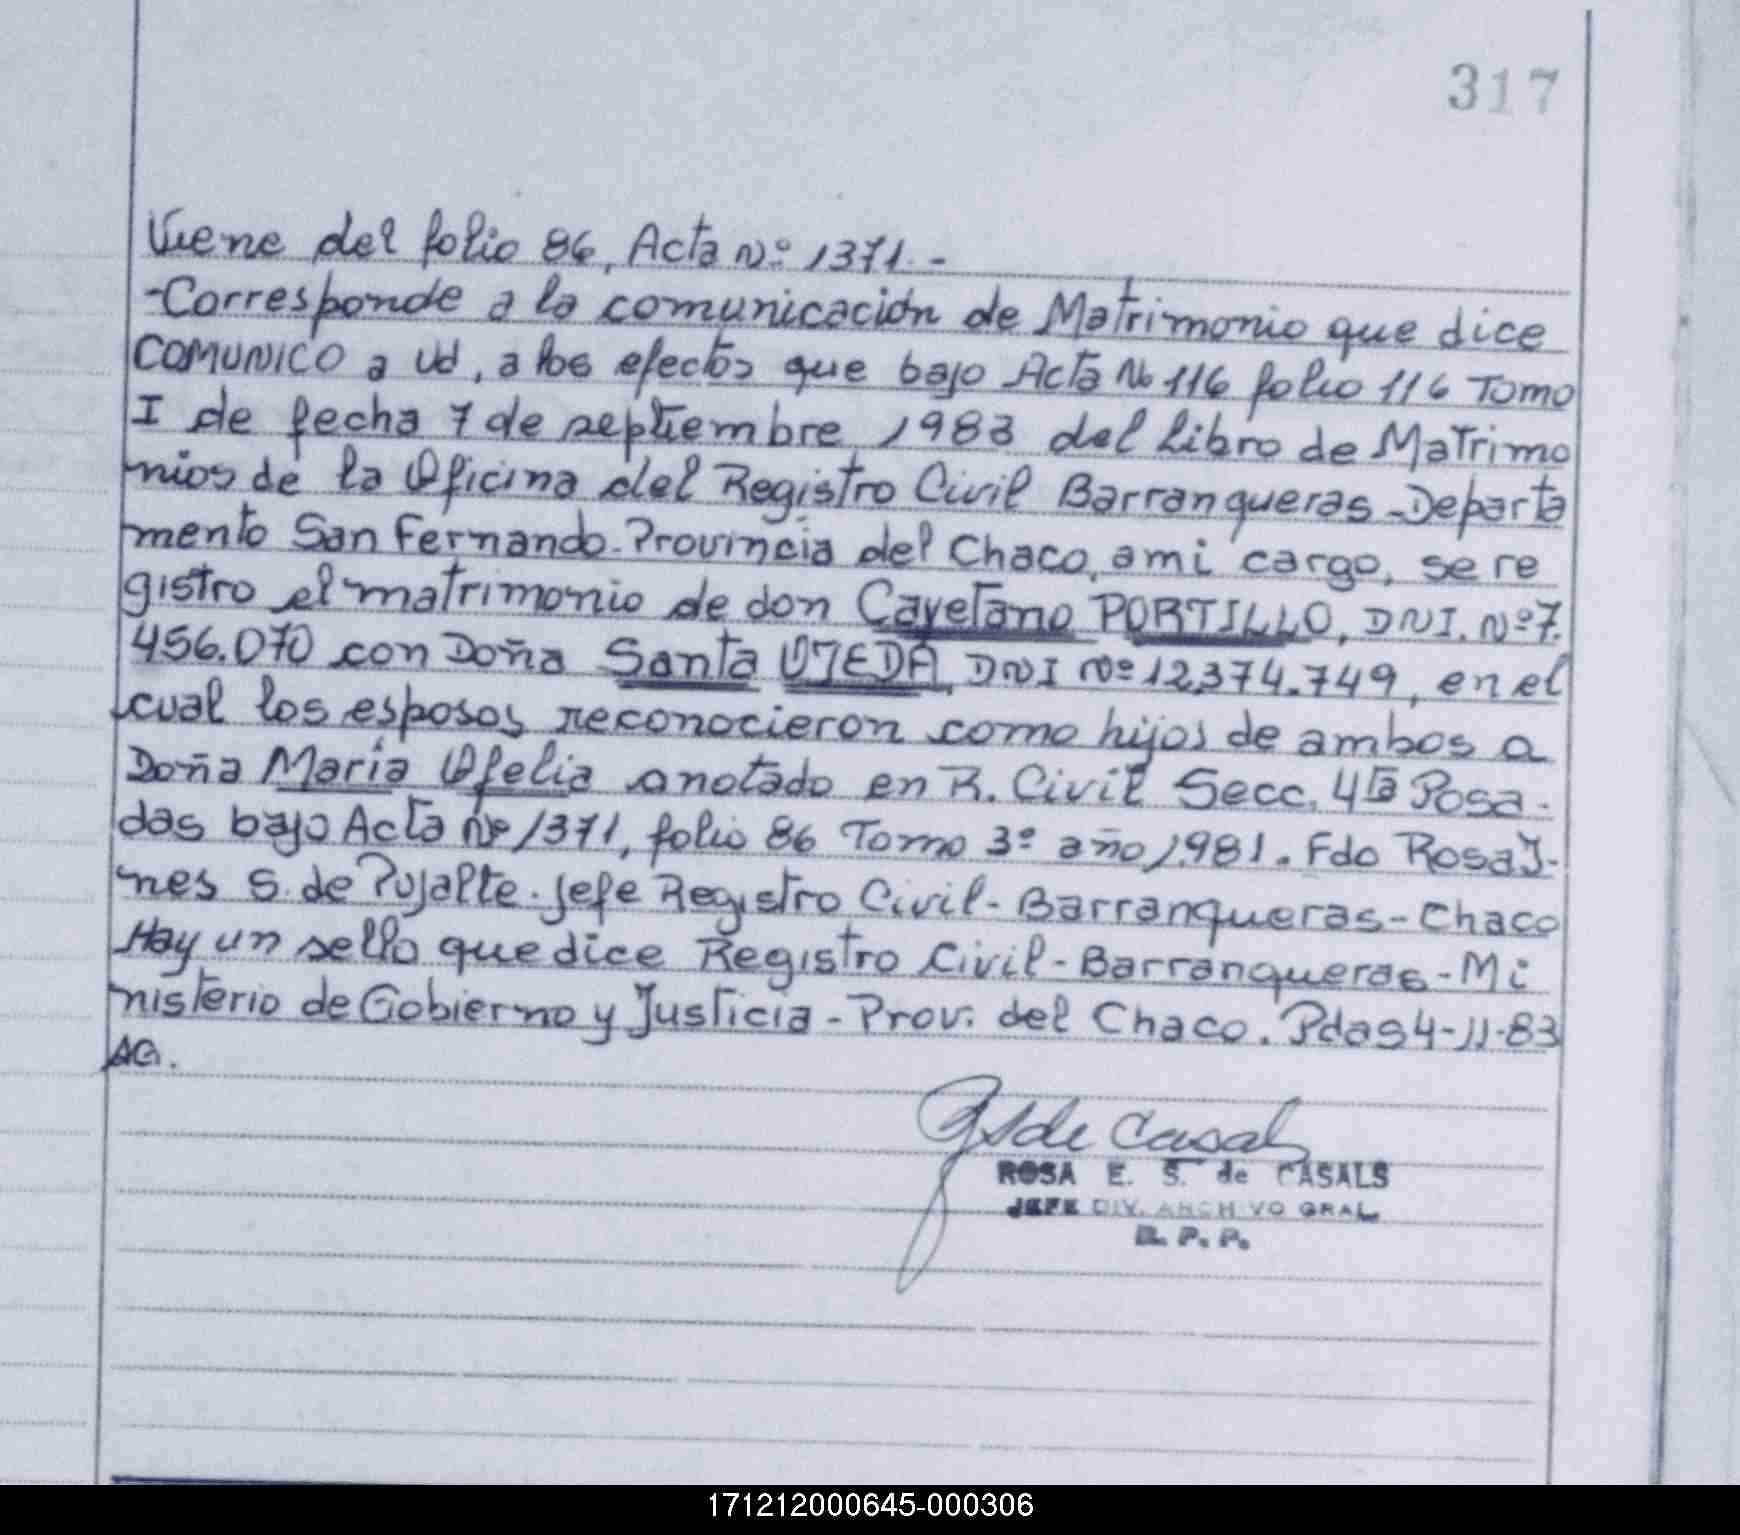 317
Viene del folio 86, Acta Nº 1371.-
-Corresponde a la comunicación de Matrimonio que dice
COMUNICO a Ud, a los efectos que bajo Acta No 116 folio 116 Tomo
I de fecha 7 de septiembre 1983 del Libro de Matrimo
nios de la Oficina del Registro Civil Barranqueras-Departa
mento San Fernando-Provincia del Chaco, a mi cargo, se re
gistro el matrimonio de don Cayetano PORTILLO, DNI. Nº 7.
456.070 con Doña Santa OJEDA, DNI Nº 12.374.749, en el
cual los esposos reconocieron como hijos de ambos a
Doña María Ofelia anotado en R. Civil Secc. 4ta Posa-
das bajo Acta Nº 1371, folio 86 Tomo 3º año 1981. Fdo Rosa I-
nes S. de Pujalte. Jefe Registro Civil-Barranqueras-Chaco
Hay un sello que dice Registro Civil-Barranqueras-Mi
nisterio de Gobierno y Justicia-Prov. del Chaco. Pdas 4-11-83
AG.
de Casals
ROSA E. S. de CASALS
JEFE DIV. ARCHIVO GRAL.
R. P. P.
171212000645-000306